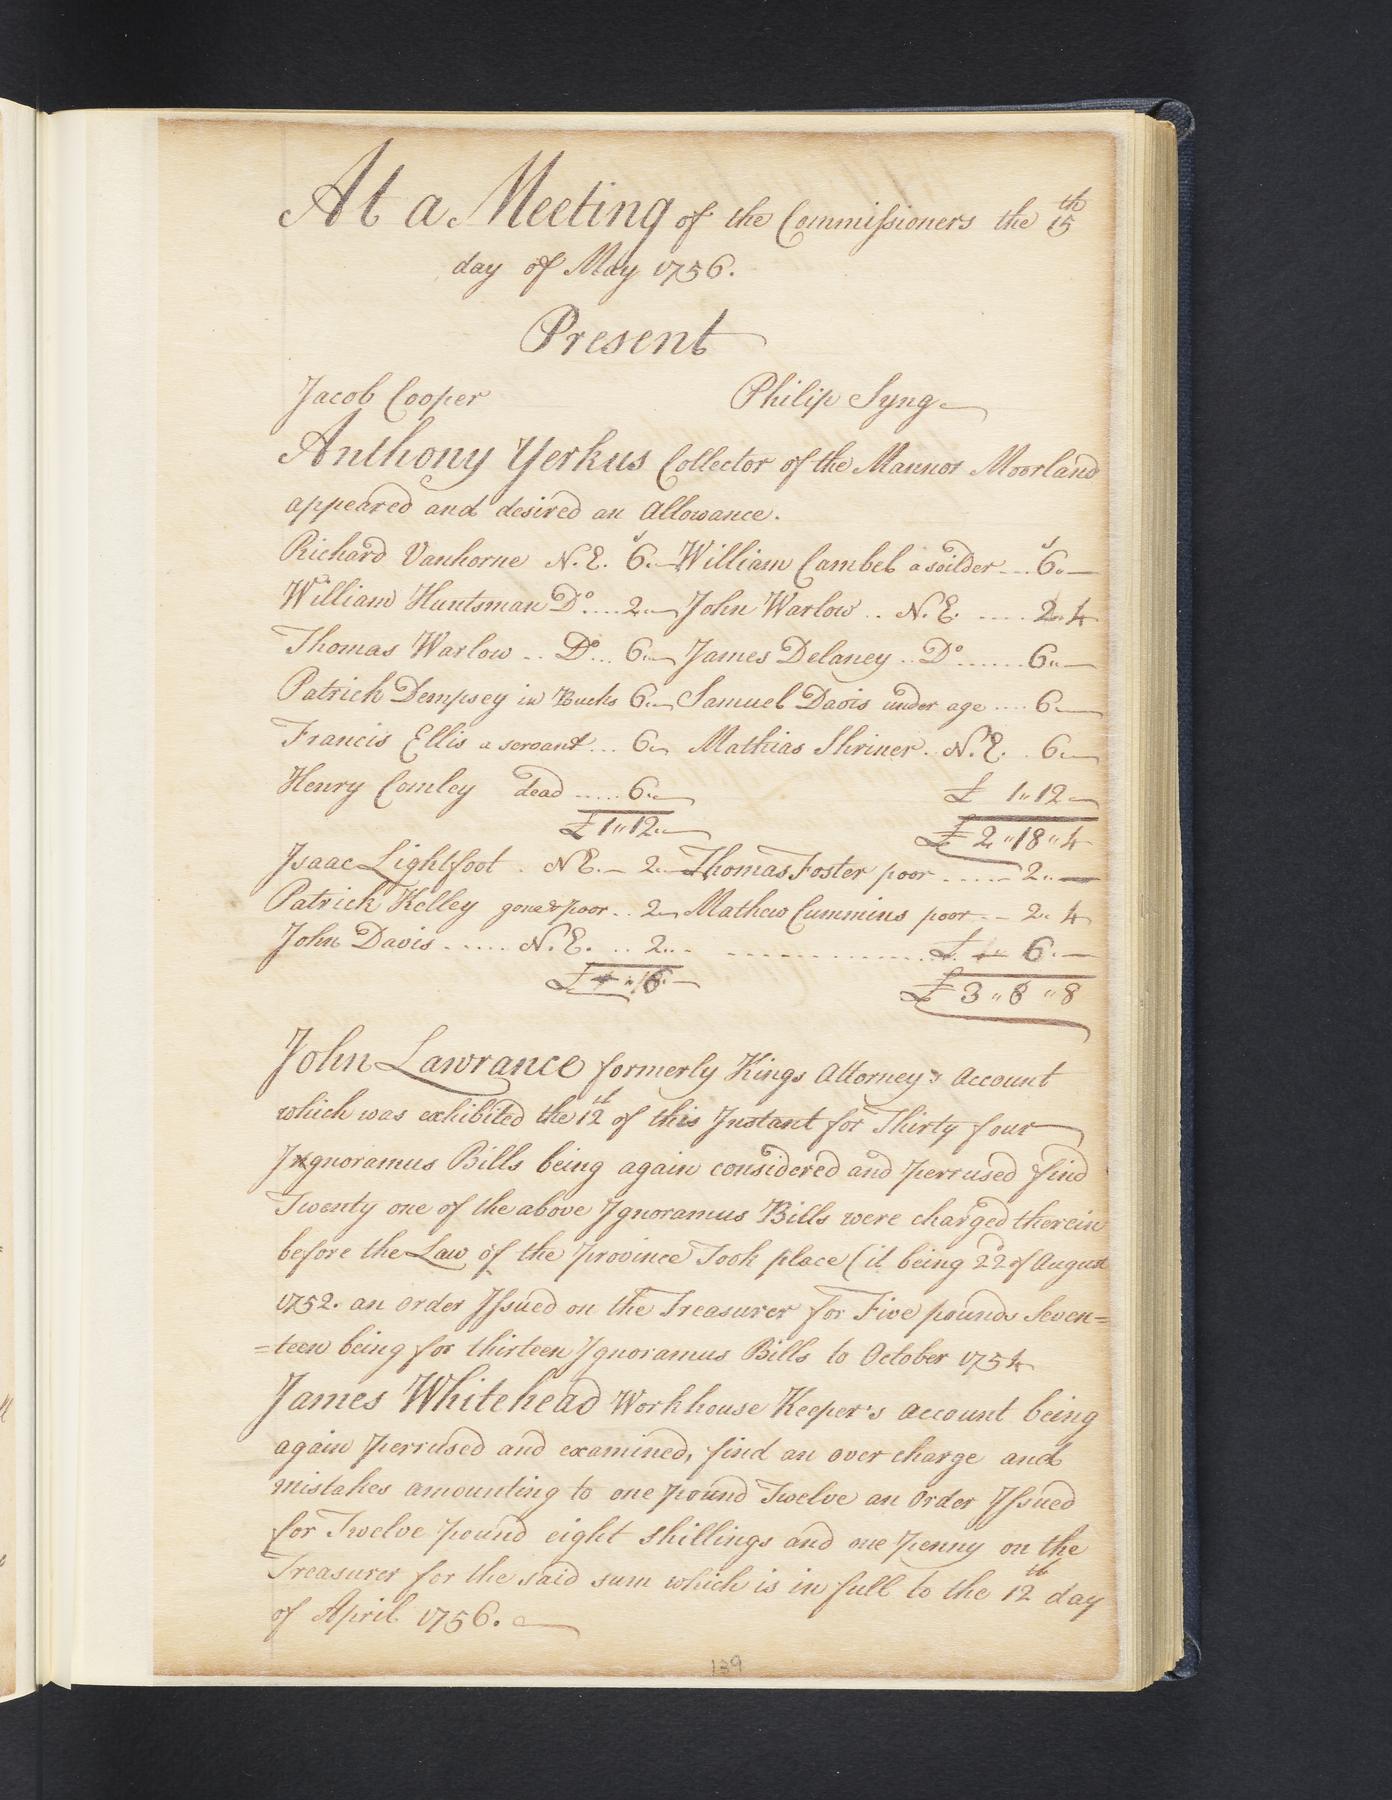 At a Meeting of the Commissioners the 15th
day of May 1756.
Present
Jacob Cooper Philip Syng
Anthony Yerkus Collector of the Mannor Moorland
appeared and desired an Allowance.
Richard Vanhorne N.E. 6s.. William Cambel a soilder ... 6s..
William Huntsman Do .... 2.. John Warlow .. N.E. ..... 2.. 4
Thomas Warlow .. Do ... 6.. James Delaney .. Do ...... 6..
Patrick Dempsey in Bucks 6.. Samuel Davis under age .... 6
Francis Ellis a servant ... 6.. Mathias Shriner .. N.E. . 6..
Henry Comley dead ..... 6.. £ 1"12
£ 1"12.. £ 2"18"4
Isaac Lightfoot . N.E. 2.. Thomas Foster poor ..... 2..
Patrick Kelley gone & poor .. 2.. Mathew Cummins poor 2.. 4
John Davis ..... N.E. .. 2... £ 6.
£ " 6. £ 3"8"8
John Lawrance formerly Kings Attorney's Account
which was exhibited the 12th of this Instant for Thirty four
Ingnoramus Bills being again considered and perrused find
Twenty one of the above Ignoramus Bills were charged therein
before the Law of the province Took place (it being 22d of August
1752. an order Issued on the Treasurer for Five pounds Seven=
=teen being for thirteen Ignoramus Bills to October 1754
James Whitehead Workhouse Keeper's account being
again perrused and examined, find an over charge and
mistakes amounting to one pound Twelve an Order Issued
for Twelve pound eight shillings and one penny on the
Treasurer for the said sum which is in full to the 12th day
of April 1756.
139